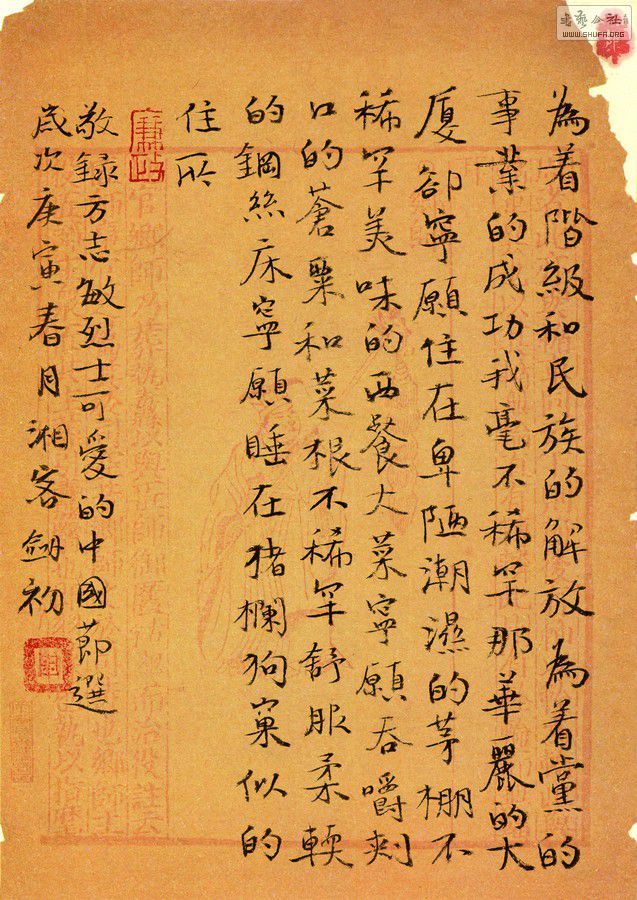 為着階級和民族的解放為着黨的
事業的成功我毫不稀罕那華麗的大
厦卻寧願住在卑陋潮濕的茅棚不
稀罕美味的西餐大菜寧願吞嚼刺
口的蒼粟和菜根不稀罕舒服柔輭
的鋼絲床寧願睡在猪欄狗窠似的
住所
廉政
敬録方志敏烈士可愛的中國節選
歲次庚寅春月湘客劍初
WWW.SHUFA.ORG